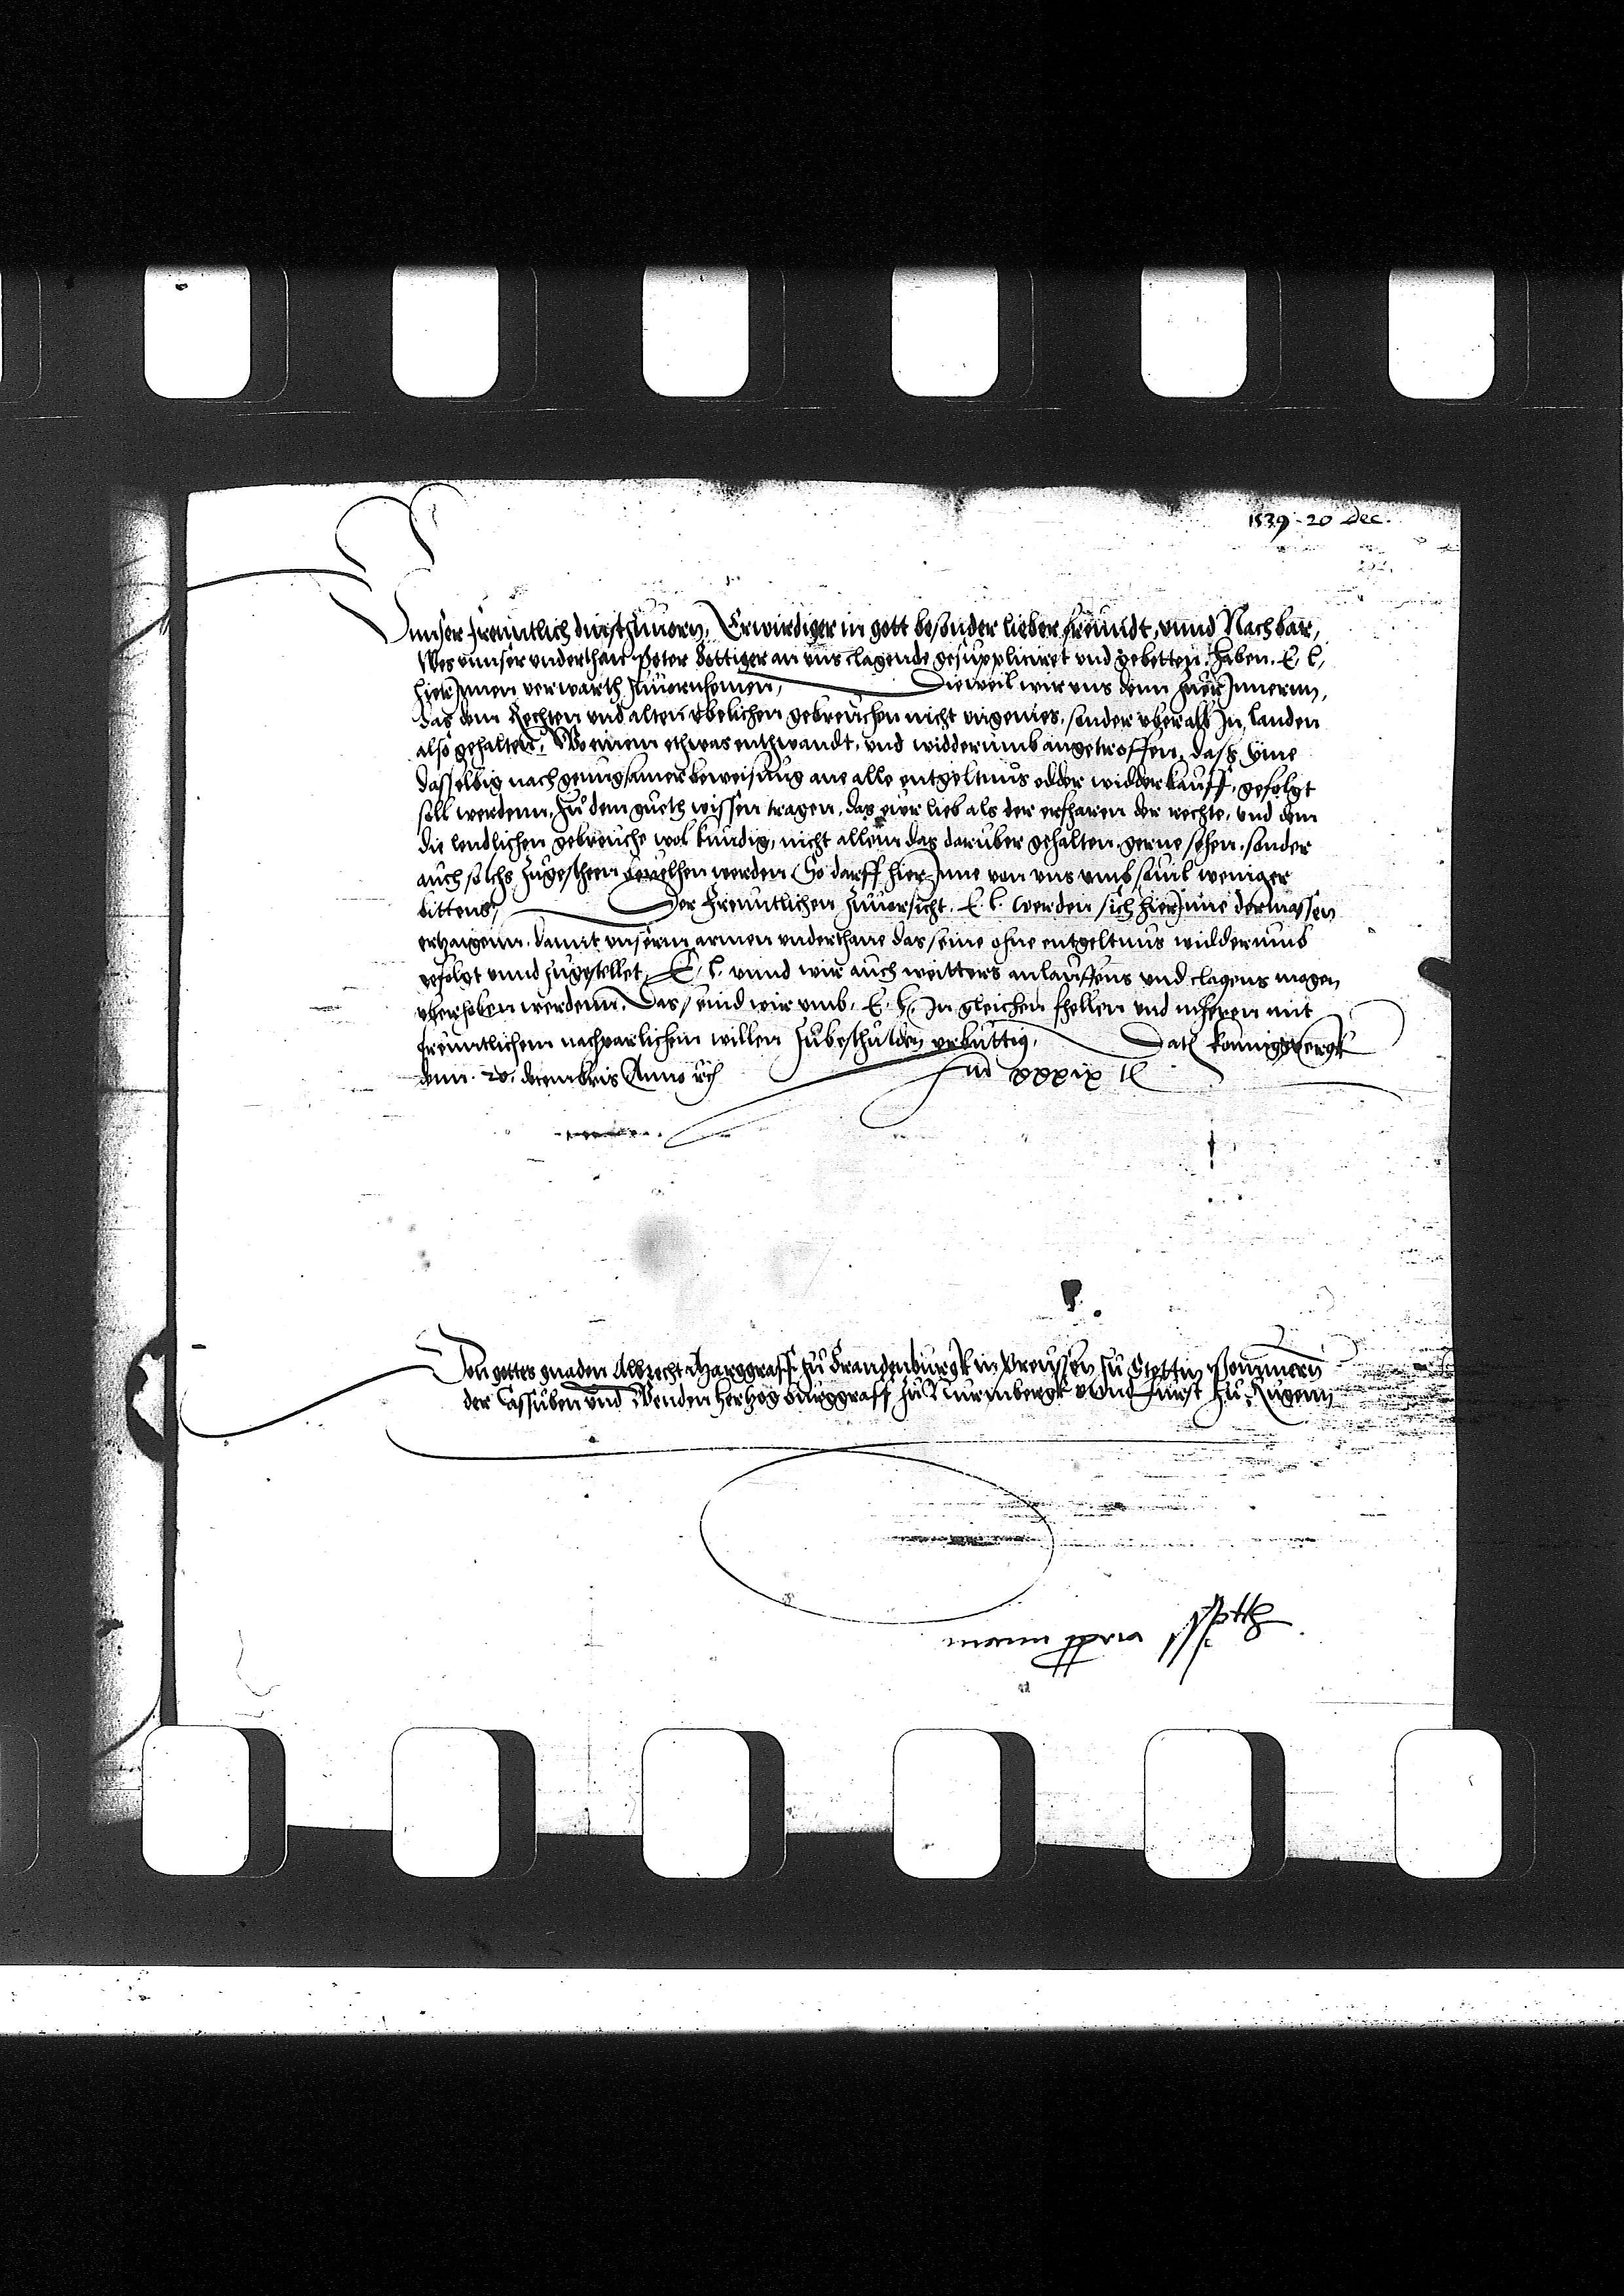 1539 - 20 Dec.
Vnnser freuntlich dinst zuuorn, Erwirdiger in gott besonder lieber freundt, vnnd Nachbar,
Wes vnnser vnderthan Peter Bottiger an vns clagende gesuppliciret vnd gebetten, haben. E. L.
hierJnnen verwarth zuuornhemen, Dieweil wir vns dann hierJnnerin,
das dem Rechten vnd alten vbelichen gebreuchen nicht vngemes, sonder vberall Jn landen
also gehalten, Wo einem ethwas enthwandt, vnd widderumb angetroffen, dass Yme
dasselbig nach genugsamer beweisung ane alle entgeltnus odder widderkauff, gefolgt
soll werdenn, Zu dem guth wissen tragen, das eur lieb als der erfharen der rechte, vnd dem
die lendlichen gebreuche wol kundig, nicht allein das daruber gehalten gerne sehen, sonder
auch solchs zugescheen beuelhen werden So darff hierJnne von vns vmb souil weniger
bittens, Der freuntlichen zuuorsicht. E. L. werden sich hierJnne dermassen
erzaigenn, damit vnserm armen vnderthane das seine ohne entgeltnus widderumb
gefolgt vnnd zugestellet, E. L. vnnd wir auch weitters anlauffens vnd clagens mogen
vberhoben werdenn, Das seind wir vmb. E. L. Jn gleichen fhellen vnd mheren mit
freuntlichem nachparlichem willen zubeschulden vrbuttig, Dat Konnigspergk
denn. 20. decembris Anno ec Jm xxxix
Von gottes gnaden Albrecht Marggraff zu Brandenburgk in Preussen zu Stettin Pommern
der Cassuben vnd Wenden Hertzog Burggraff zu Nurmbergk vnnd Furst zu Rugenn